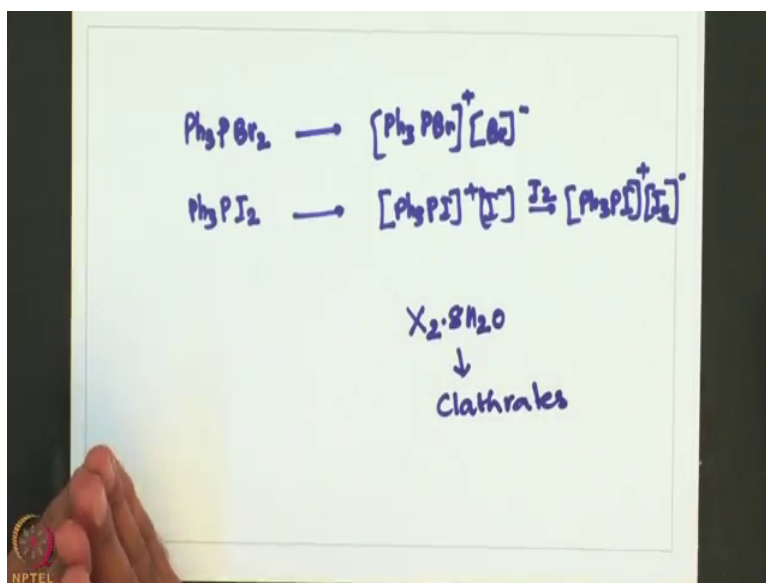 Ph₃PBr₂ ⟶ [Ph₃PBr]⁺[Br]⁻
Ph₃PI₂ ⟶ [Ph₃PI]⁺[I⁻] —I₂→ [Ph₃PI]⁺[I₃]⁻
X₂·8H₂O
↓
Clathrates
NPTEL